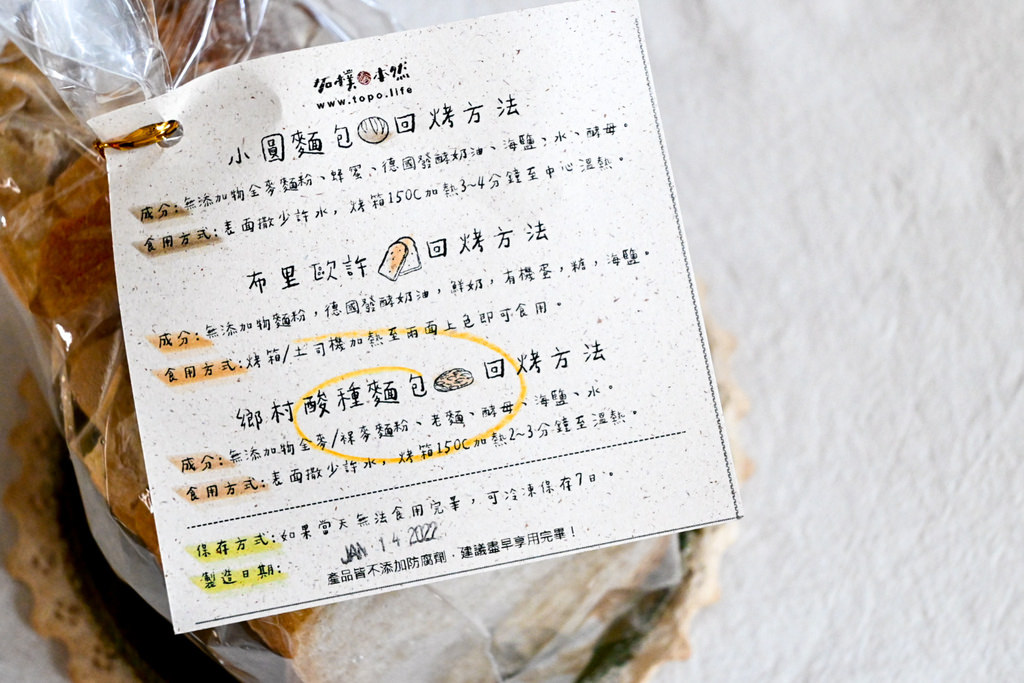 拓樸本然
www.topo.life
小圓麵包回烤方法
成分:無添加物全麥麵粉、蜂蜜、德國發酵奶油、海鹽、水、酵母。
食用方式:表面撒少許水,烤箱150C加熱3~4分鐘至中心溫熱。
布里歐許回烤方法
成分:無添加物麵粉,德國發酵奶油,鮮奶,有機蛋,糖,海鹽。
食用方式:烤箱/土司機加熱至兩面上色即可食用。
鄉村酸種麵包回烤方法
成分:無添加物全麥/裸麥麵粉、老麵、酵母、海鹽、水。
食用方式:表面撒少許水,烤箱150C加熱2~3分鐘至溫熱。
保存方式:如果當天無法食用完畢,可冷凍保存7日。
製造日期: JAN 14 2022
產品皆不添加防腐劑,建議盡早享用完畢!